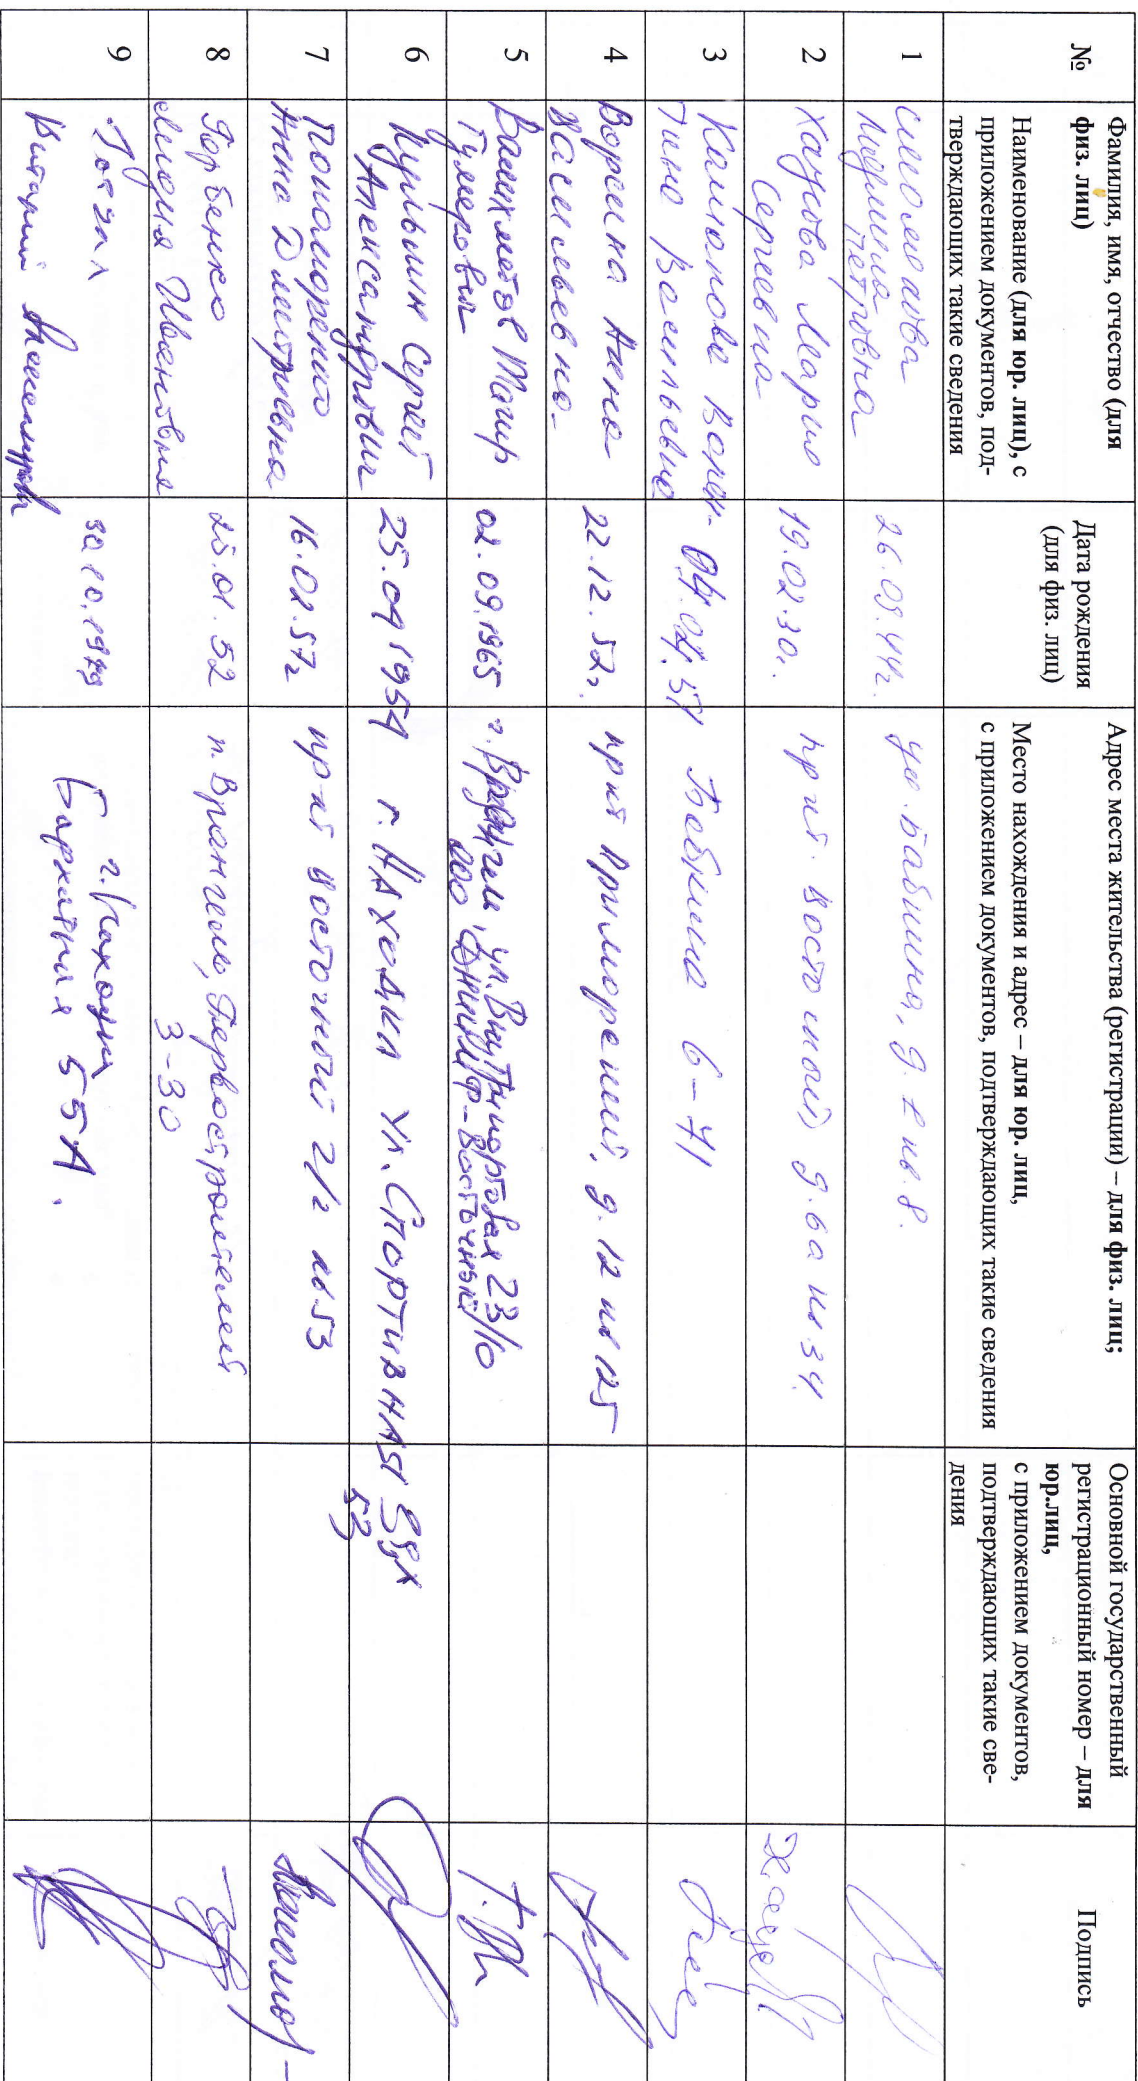 №
Фамилия, имя, отчество (для
физ. лиц)
Наименование (для юр. лиц), с
приложением документов, под-
тверждающих такие сведения
Дата рождения
(для физ. лиц)
Адрес места жительства (регистрации) – для физ. лиц;
Место нахождения и адрес – для юр. лиц,
с приложением документов, подтверждающих такие сведения
Основной государственный
регистрационный номер – для
юр.лиц,
с приложением документов,
подтверждающих такие све-
дения
Подпись
1
Людмила
Петровна
26.09.44г.
ул. Бабкина, д. 2 кв. 8.
2
Хаустова Мария
Сергеевна
19.02.30.
пр кт. Восточный д. 6а кв. 34.
3
Вален-
тина Васильевна
04.02.51
Бабкина 6-41
4
Ворсина Анна
Васильевна
22.12.52г.
пр кт Приморский, д. 12 кв 125
5
Тимерович
02.09.1965
г. Врангель, ул. Внутрипортовая 23/10
ООО ЦНИИМФ-Восточный
6
Сергей
Александрович
25.09 1954
г. Находка ул. Спортивная
53
7
Пономаренко
Анна Дмитриевна
16.02.57г
пр кт Восточный 2/2 кв 53
8
Горбенко
Ивановна
25.01.52
п. Врангель, Первостроителей
3-30
9
Виталий
30.10.1979
г. Находка
Бархатная 55А.